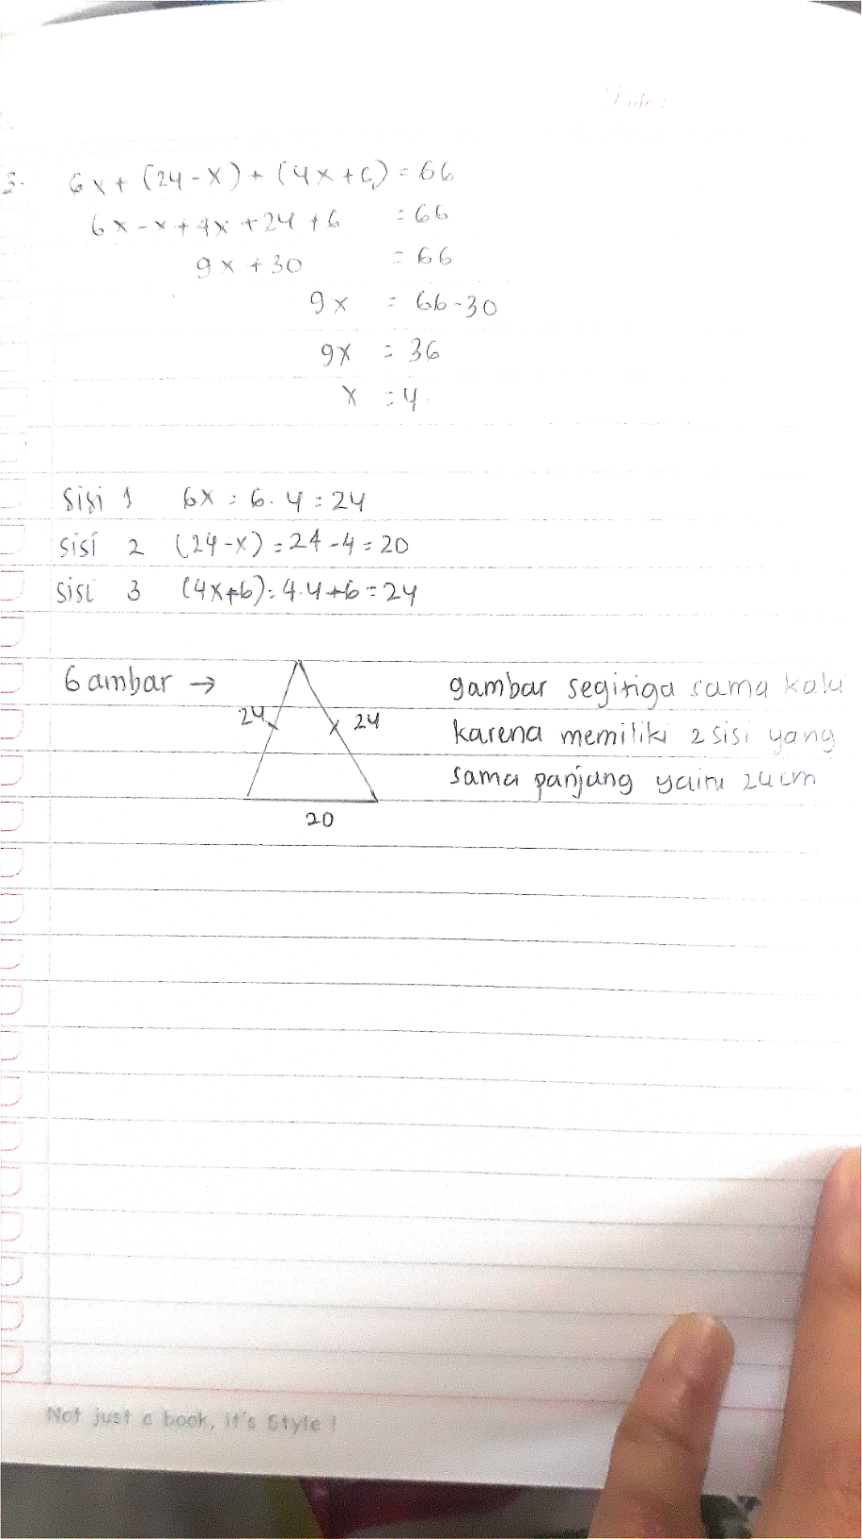 3. 6x + (24 - x) + (4x + 6) = 66
6x - x + 4x + 24 + 6 = 66
9x + 30 = 66
9x = 66 - 30
9x = 36
x = 4
Sisi 1 6x = 6 . 4 = 24
sisi 2 (24 - x) = 24 - 4 = 20
sisi 3 (4x + 6) = 4.4 + 6 = 24
Gambar → gambar segitiga sama kaki
24 24 karena memiliki 2 sisi yang
sama panjang yaitu 24 cm
20
Not just a book, it's Style !